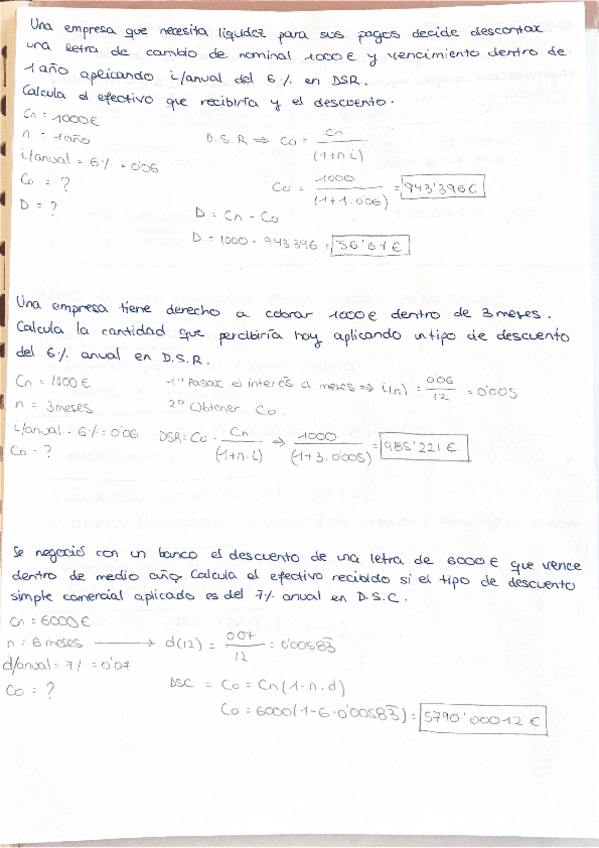 Una empresa que necesita liquidez para sus pagos decide descontar
una letra de cambio de nominal 1000 € y vencimiento dentro de
1 año aplicando i/anual del 6% en DSR.
Calcula el efectivo que recibiría y el descuento.
Cn = 1000€
n = 1año
i/anual = 6% = 0'06
Co = ?
D = ?
D.S.R ⇒ Co = Cn / (1+n.i)
Co = 1000 / (1+1.0'06) = 943'396€
D = Cn - Co
D = 1000 - 943'396 = 56'61 €
Una empresa tiene derecho a cobrar 1000€ dentro de 3 meses.
Calcula la cantidad que percibiría hoy aplicando un tipo de descuento
del 6% anual en D.S.R.
Cn = 1000 €
n = 3meses
i/anual = 6% = 0'06
Co = ?
1º Pasar el interés a meses ⇒ i(12) = 0'06 / 12 = 0'005
2º Obtener Co.
DSR: Co = Cn / (1+n.i) ⇒ 1000 / (1+3.0'005) = 985'221 €
Se negoció con un banco el descuento de una letra de 6000 € que vence
dentro de medio año. Calcula el efectivo recibido si el tipo de descuento
simple comercial aplicado es del 7% anual en D.S.C.
Cn = 6000€
n = 6 meses → d(12) = 0'07 / 12 = 0'00583
d/anual = 7% = 0'07
Co = ?
DSC = Co = Cn (1-n.d)
Co = 6000 (1-6.0'00583) = 5790'00012 €